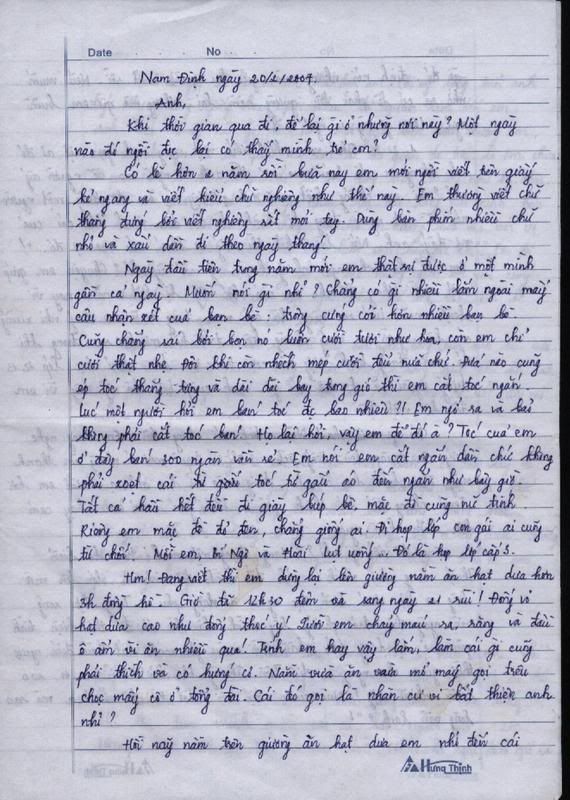 Date . . . . . No . . . .
Nam Định ngày 20/2/2007.
Anh,
Khi thời gian qua đi, để lại gì ở những nơi này? Một ngày
nào đó ngồi đọc lại có thấy mình trẻ con?
Có lẽ hơn 2 năm rồi bữa nay em mới ngồi viết trên giấy
kẻ ngang và viết kiểu chữ nghiêng như thế này. Em thường viết chữ
thẳng đứng bởi viết nghiêng rất mỏi tay. Dùng bàn phím nhiều chữ
nhỏ và xấu dần đi theo ngày tháng!
Ngày đầu tiên trong năm mới em thật sự được ở một mình
gần cả ngày. Muốn nói gì nhỉ? Chẳng có gì nhiều lắm ngoài mấy
câu nhận xét của bạn bè: trông cứng cỏi hơn nhiều bạn bè.
Cũng chẳng sai bởi bọn nó luôn cười tươi như hoa, còn em chỉ
cười thật nhẹ. Đôi khi còn nhếch mép cười đểu nữa chứ. Đứa nào cũng
ép tóc thẳng tưng và dài dài bay trong gió thì em cắt tóc ngắn
lúc một người hỏi em bán tóc đc bao nhiêu?!! Em ngớ ra và bảo
không phải cắt tóc bán! Họ lại hỏi, vậy em để đó à? Tóc của em
ở đây bán 300 ngàn vẫn rẻ! Em nói em cắt ngắn dần chứ không
phải xoẹt cái từ giảm tóc từ gấu áo đến ngắn như bây giờ.
Tất cả hầu hết đều đi giày búp bê, mặc đồ cũng nữ tính
Riêng em mặc đồ đỏ đen, chẳng giống ai. Đi họp lớp con gái ai cũng
từ chối. Mỗi em, Bí Ngô và Hoài lụt uống... Đó là họp lớp cấp 3.
Hm! Đang viết thì em dừng lại lên giường nằm ăn hạt dưa hơn
3h đồng hồ. Giờ đã 12h30 đêm và sang ngày 21 rùi! Đống vỏ
hạt dưa cao như đống thóc ý! Lưỡi em chảy máu ra, răng và đầu
ê ẩm vì ăn nhiều quá! Tính em hay vậy lắm, làm cái gì cũng
phải thích và có hứng cơ. Nằm vừa ăn vừa mở máy gọi trêu
chọc mấy cô ở tổng đài. Cái đó gọi là nhàn cư vi bất thiện anh
nhỉ?
Hồi nãy nằm trên giường ăn hạt dưa em nhớ đến cái
Hưng Thịnh